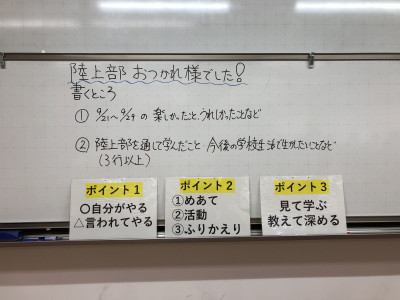 陸上部 おつかれ様でした!
書くところ
① 9/21～9/29 の 楽しかったこと、うれしかったことなど
② 陸上部を通して学んだこと 今後の学校生活で生かしたいことなど
(3行以上)
ポイント1
〇自分がやる
△言われてやる
ポイント2
①めあて
②活動
③ふりかえり
ポイント3
見て学ぶ
教えて深める